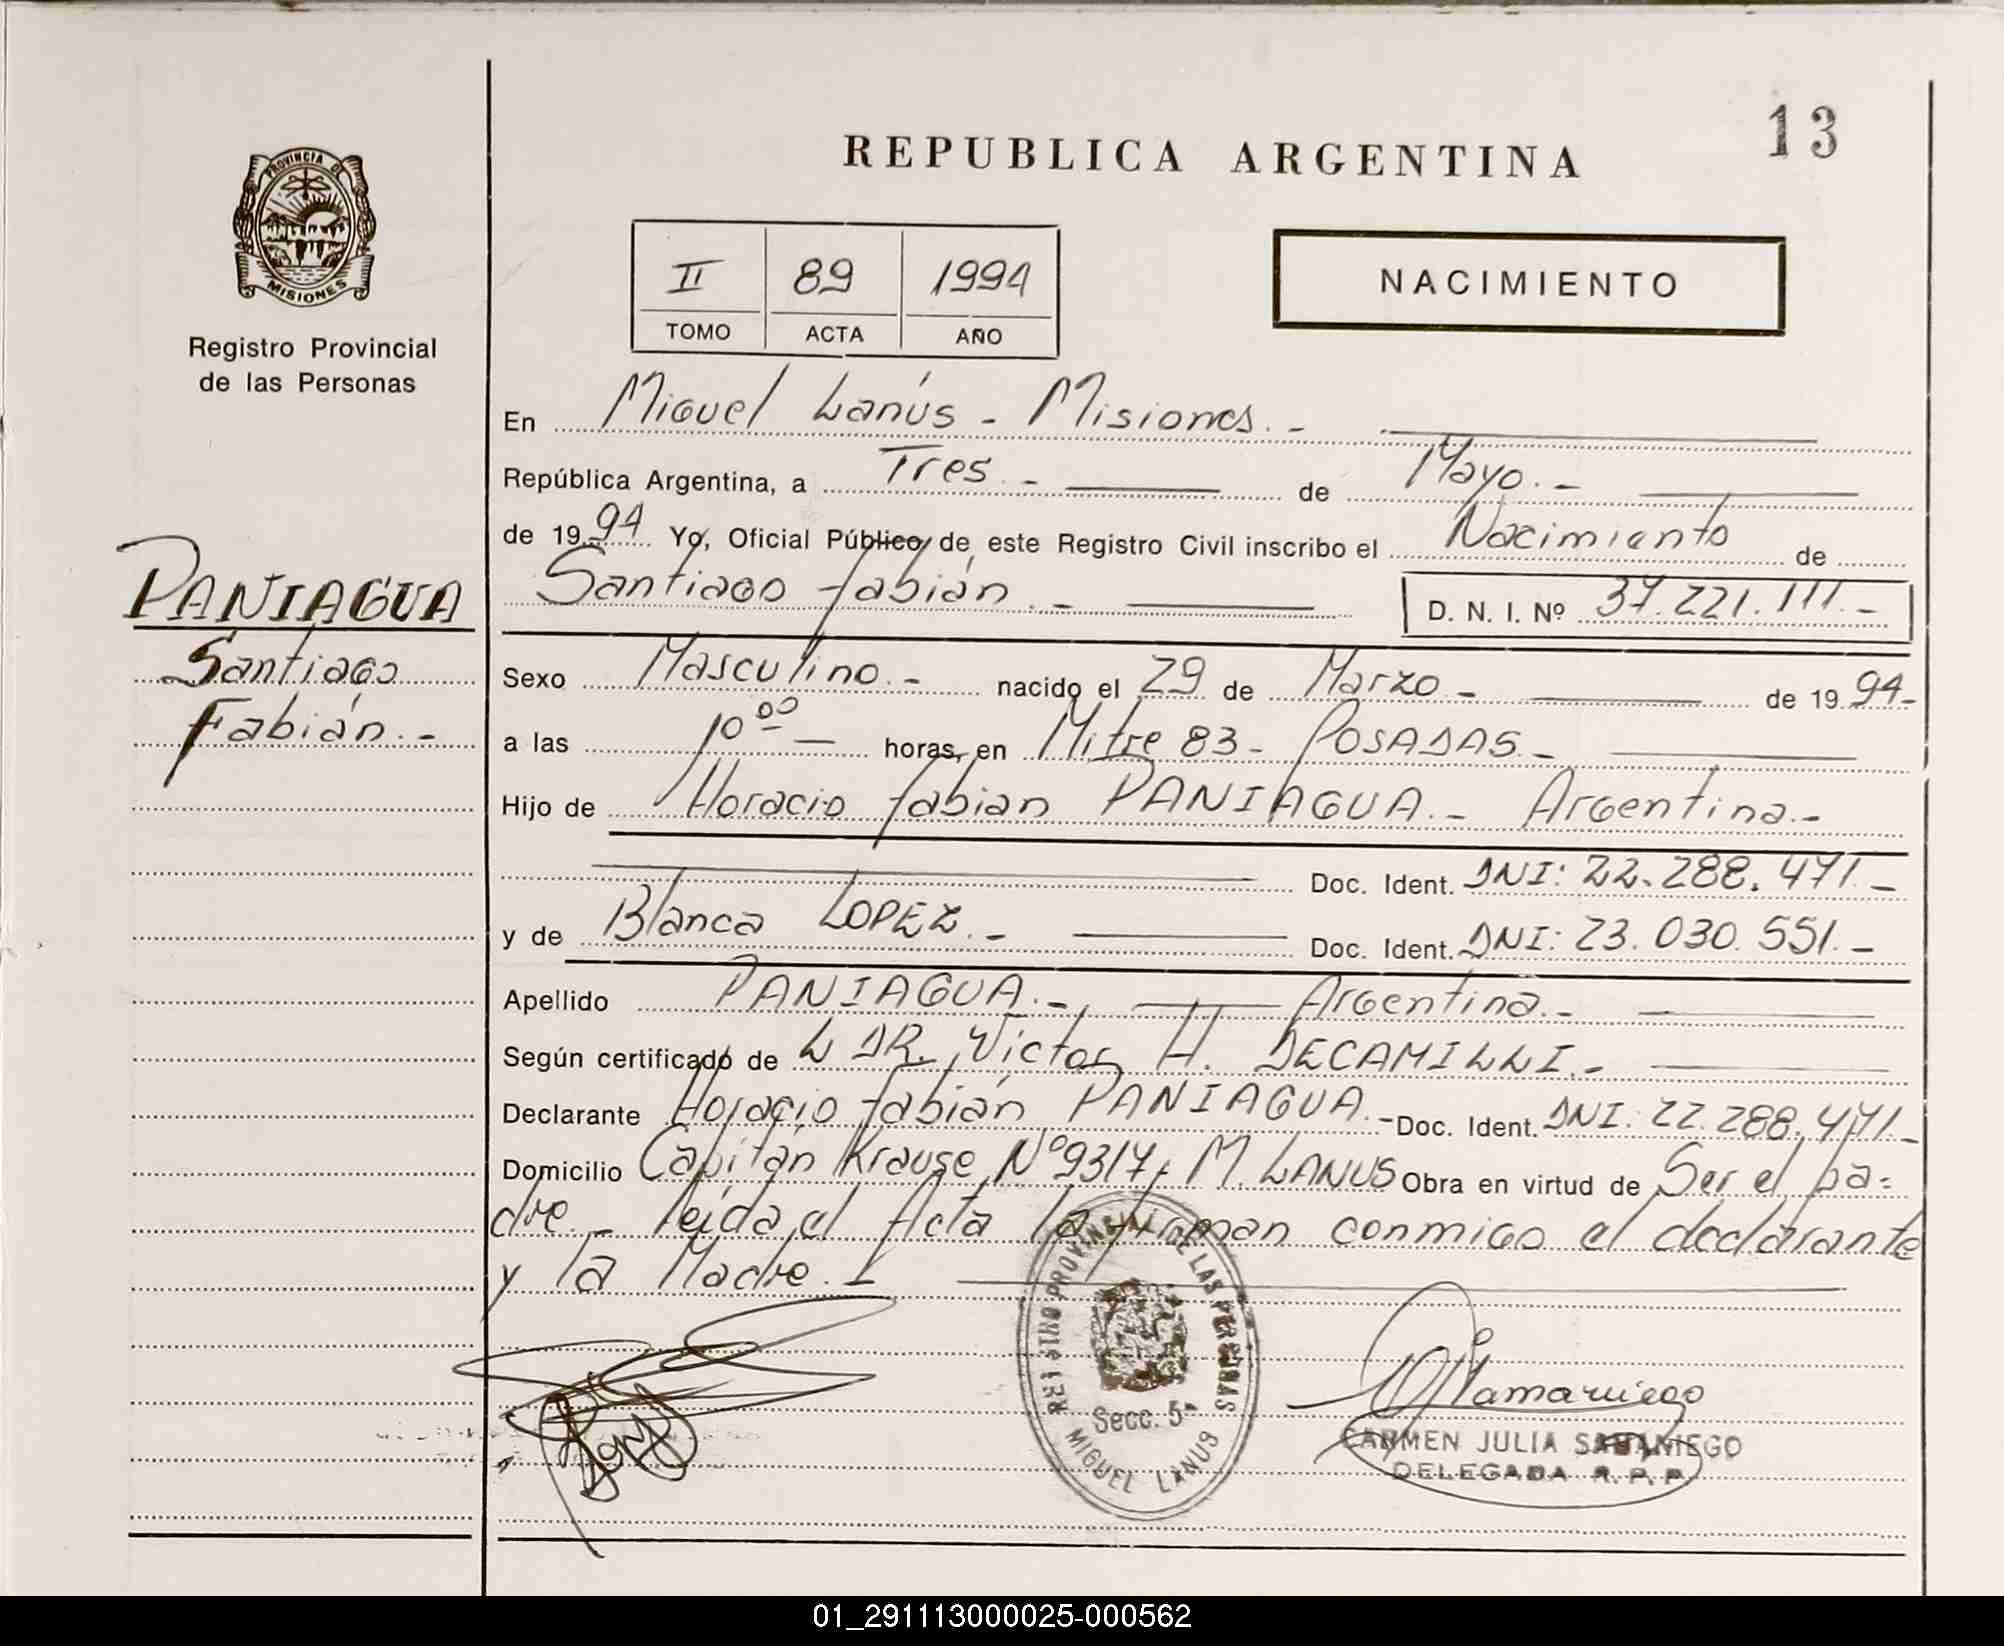 13
REPUBLICA ARGENTINA
PROVINCIA DE
MISIONES
Registro Provincial
de las Personas
II 89 1994
TOMO ACTA AÑO
NACIMIENTO
En Miguel Lanús - Misiones. -
República Argentina, a Tres. - de Mayo. -
de 1994 Yo, Oficial Público de este Registro Civil inscribo el Nacimiento de
Santiago Fabián. - D. N. I. Nº 37.221.111. -
PANIAGUA
Santiago
Fabián. -
Sexo Masculino. - nacido el 29 de Marzo - de 1994-
a las 10⁰⁰ - horas, en Mitre 83 - POSADAS. -
Hijo de Horacio Fabian PANIAGUA. - Argentina. -
Doc. Ident. DNI: 22.288.471. -
y de Blanca LOPEZ. - Doc. Ident. DNI: 23.030.551. -
Apellido PANIAGUA. - Argentina. -
Según certificado de L DR. Victor H. DECAMILLI. -
Declarante Horacio Fabián PANIAGUA. - Doc. Ident. DNI: 22.288.471. -
Domicilio Capitán Krause Nº 9317, M. LANUS Obra en virtud de Ser el pa=
dre. - leída el Acta la firman conmigo el declarante
y la Madre. -
REGISTRO PROVINCIAL DE LAS PERSONAS
Secc. 5ª
MIGUEL LANUS
CARMEN JULIA SAMANIEGO
DELEGADA R. P. P.
01_291113000025-000562